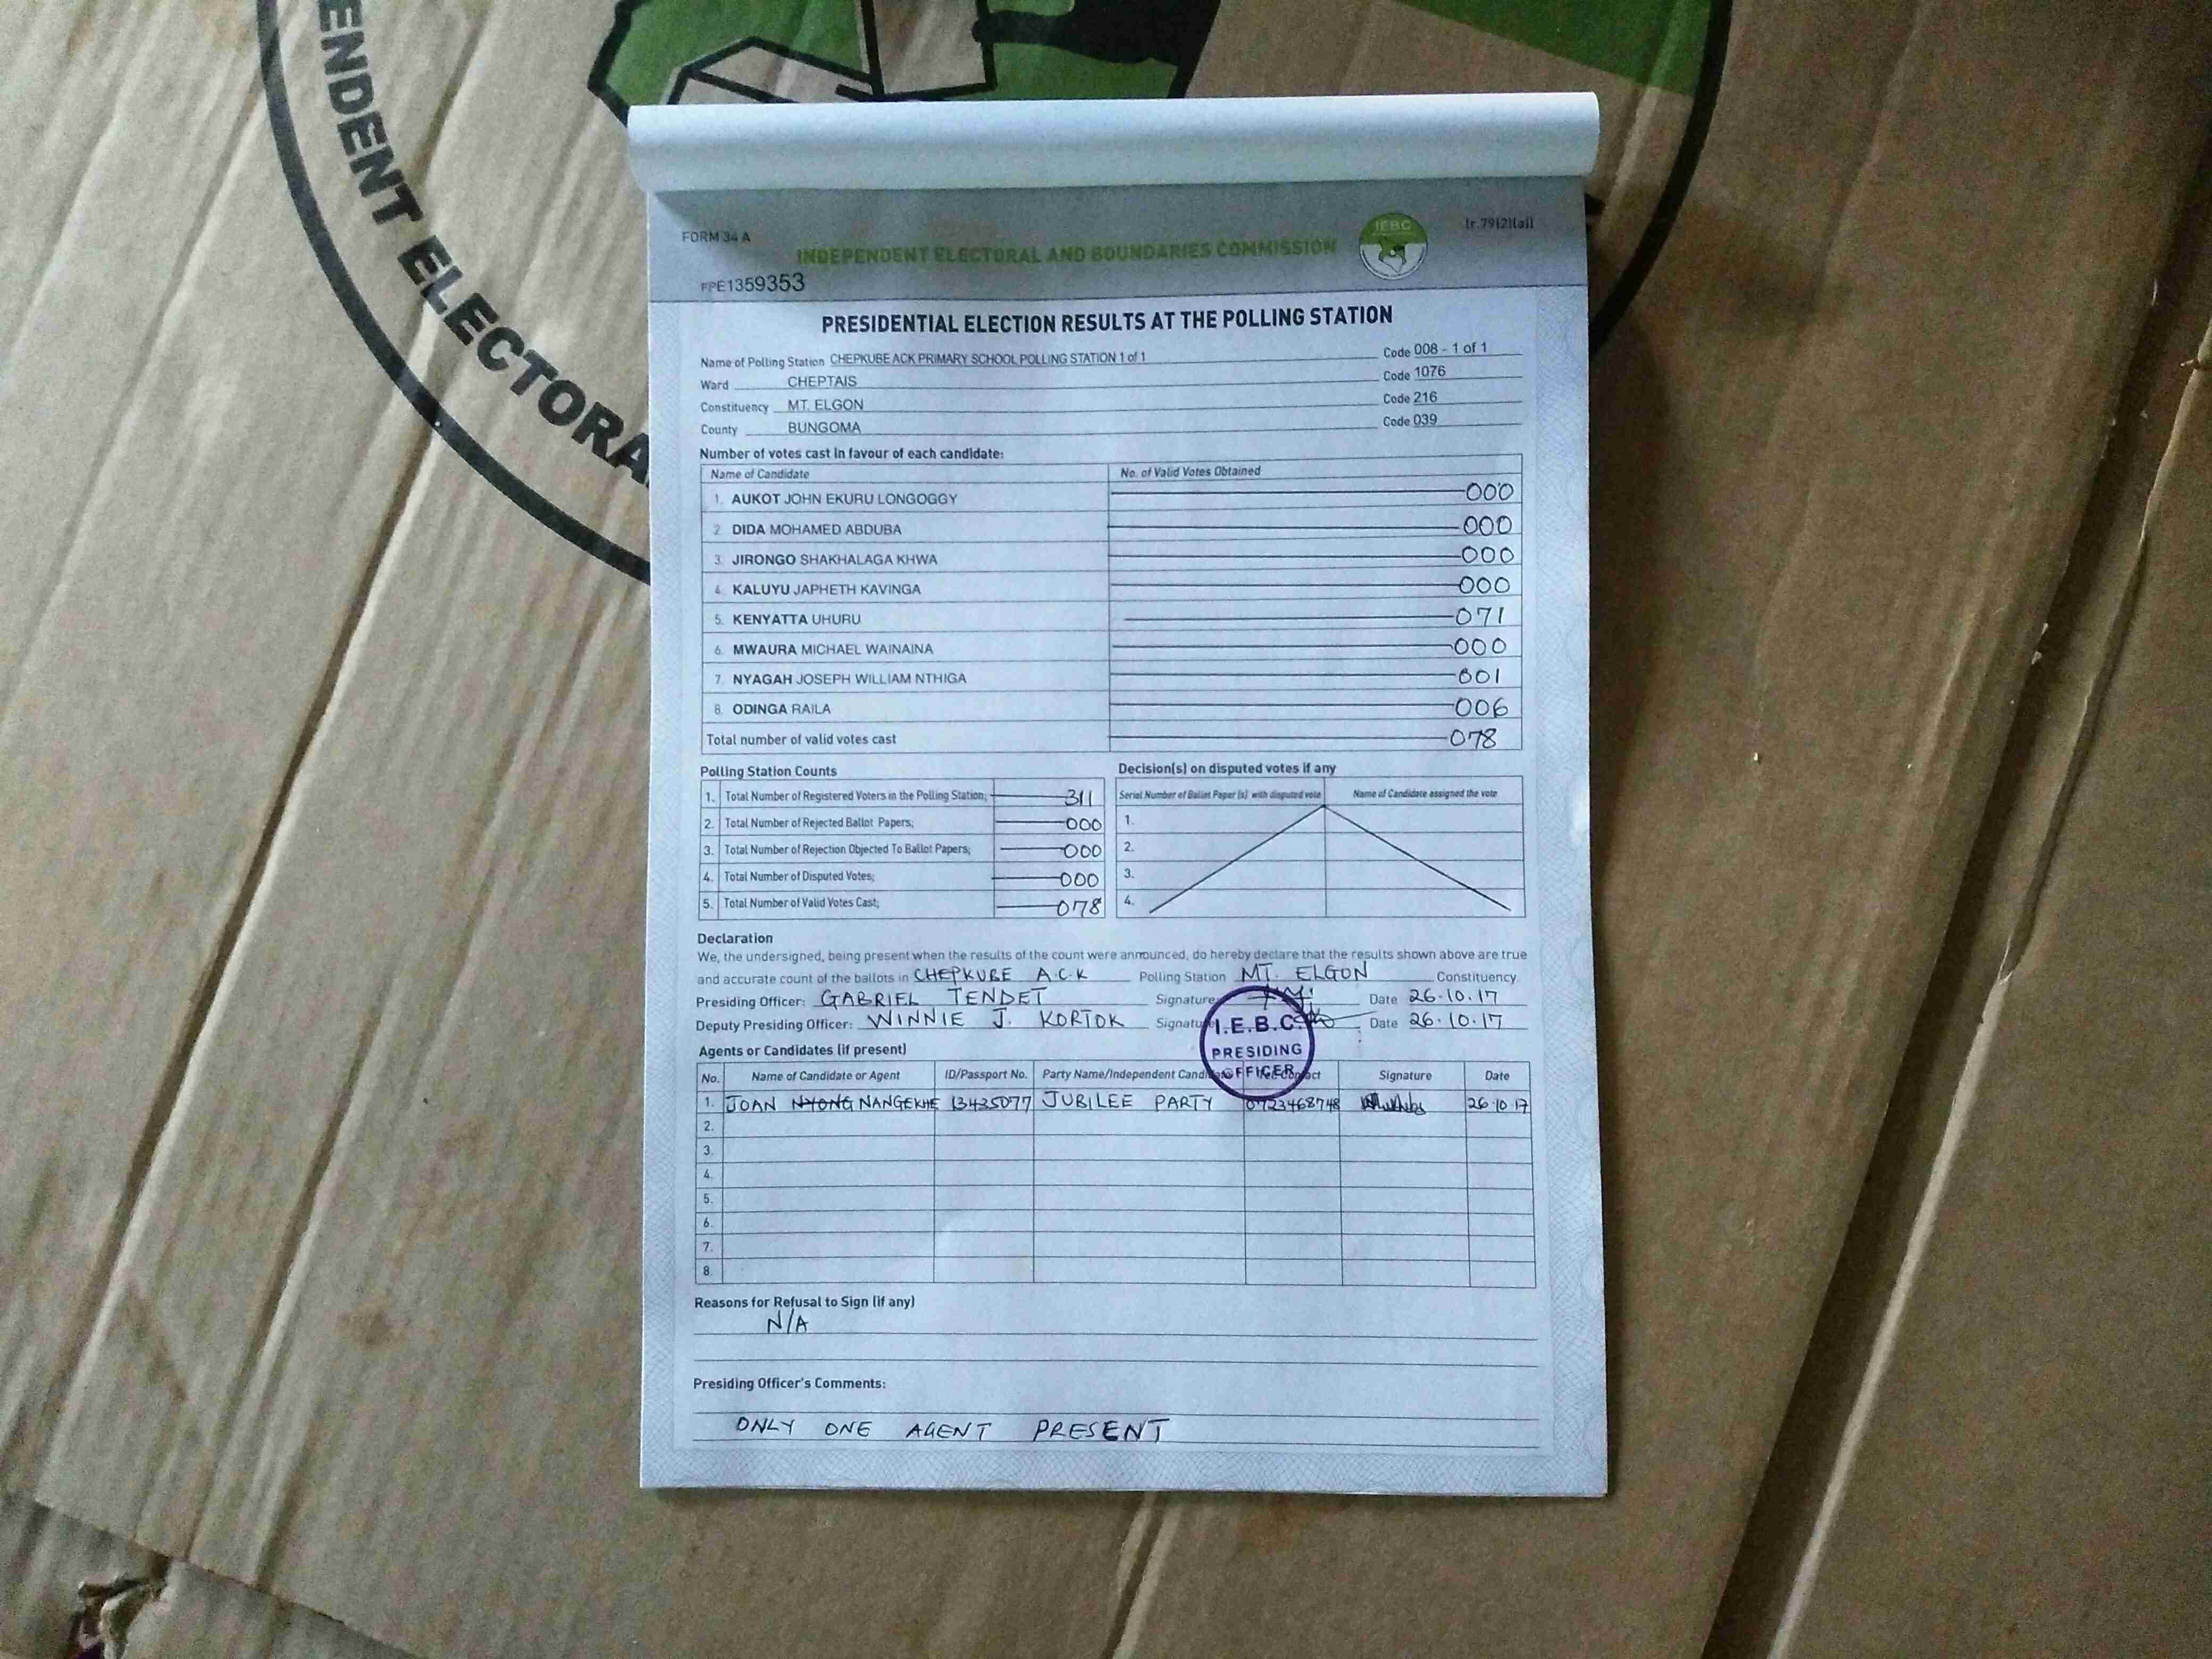 ENDENT ELECTORA
FORM 34 A
INDEPENDENT ELECTORAL AND BOUNDARIES COMMISSION
IEBC
(r.79(2)(a))
FPE1359353
PRESIDENTIAL ELECTION RESULTS AT THE POLLING STATION
Name of Polling Station CHEPKUBE ACK PRIMARY SCHOOL POLLING STATION 1 of 1 Code 008 - 1 of 1
Ward CHEPTAIS Code 1076
Constituency MT. ELGON Code 216
County BUNGOMA Code 039
Number of votes cast in favour of each candidate:
Name of Candidate No. of Valid Votes Obtained
1. AUKOT JOHN EKURU LONGOGGY 000
2. DIDA MOHAMED ABDUBA 000
3. JIRONGO SHAKHALAGA KHWA 000
4. KALUYU JAPHETH KAVINGA 000
5. KENYATTA UHURU 071
6. MWAURA MICHAEL WAINAINA 000
7. NYAGAH JOSEPH WILLIAM NTHIGA 001
8. ODINGA RAILA 006
Total number of valid votes cast 078
Polling Station Counts
1. Total Number of Registered Voters in the Polling Station; 311
2. Total Number of Rejected Ballot Papers; 000
3. Total Number of Rejection Objected To Ballot Papers; 000
4. Total Number of Disputed Votes; 000
5. Total Number of Valid Votes Cast; 078
Decision(s) on disputed votes if any
Serial Number of Ballot Paper (s) with disputed vote Name of Candidate assigned the vote
1.
2.
3.
4.
Declaration
We, the undersigned, being present when the results of the count were announced, do hereby declare that the results shown above are true
and accurate count of the ballots in CHEPKUBE A.C.K Polling Station MT. ELGON Constituency
Presiding Officer: GABRIEL TENDET Signature Date 26.10.17
Deputy Presiding Officer: WINNIE J. KORTOK Signature Date 26.10.17
I.E.B.C.
PRESIDING
OFFICER
Agents or Candidates (if present)
No. Name of Candidate or Agent ID/Passport No. Party Name/Independent Candidate Tel. Contact Signature Date
1. JOAN NYONG NANGEKHE 13435077 JUBILEE PARTY 0723468748 26.10.17
2.
3.
4.
5.
6.
7.
8.
Reasons for Refusal to Sign (if any)
N/A
Presiding Officer's Comments:
ONLY ONE AGENT PRESENT